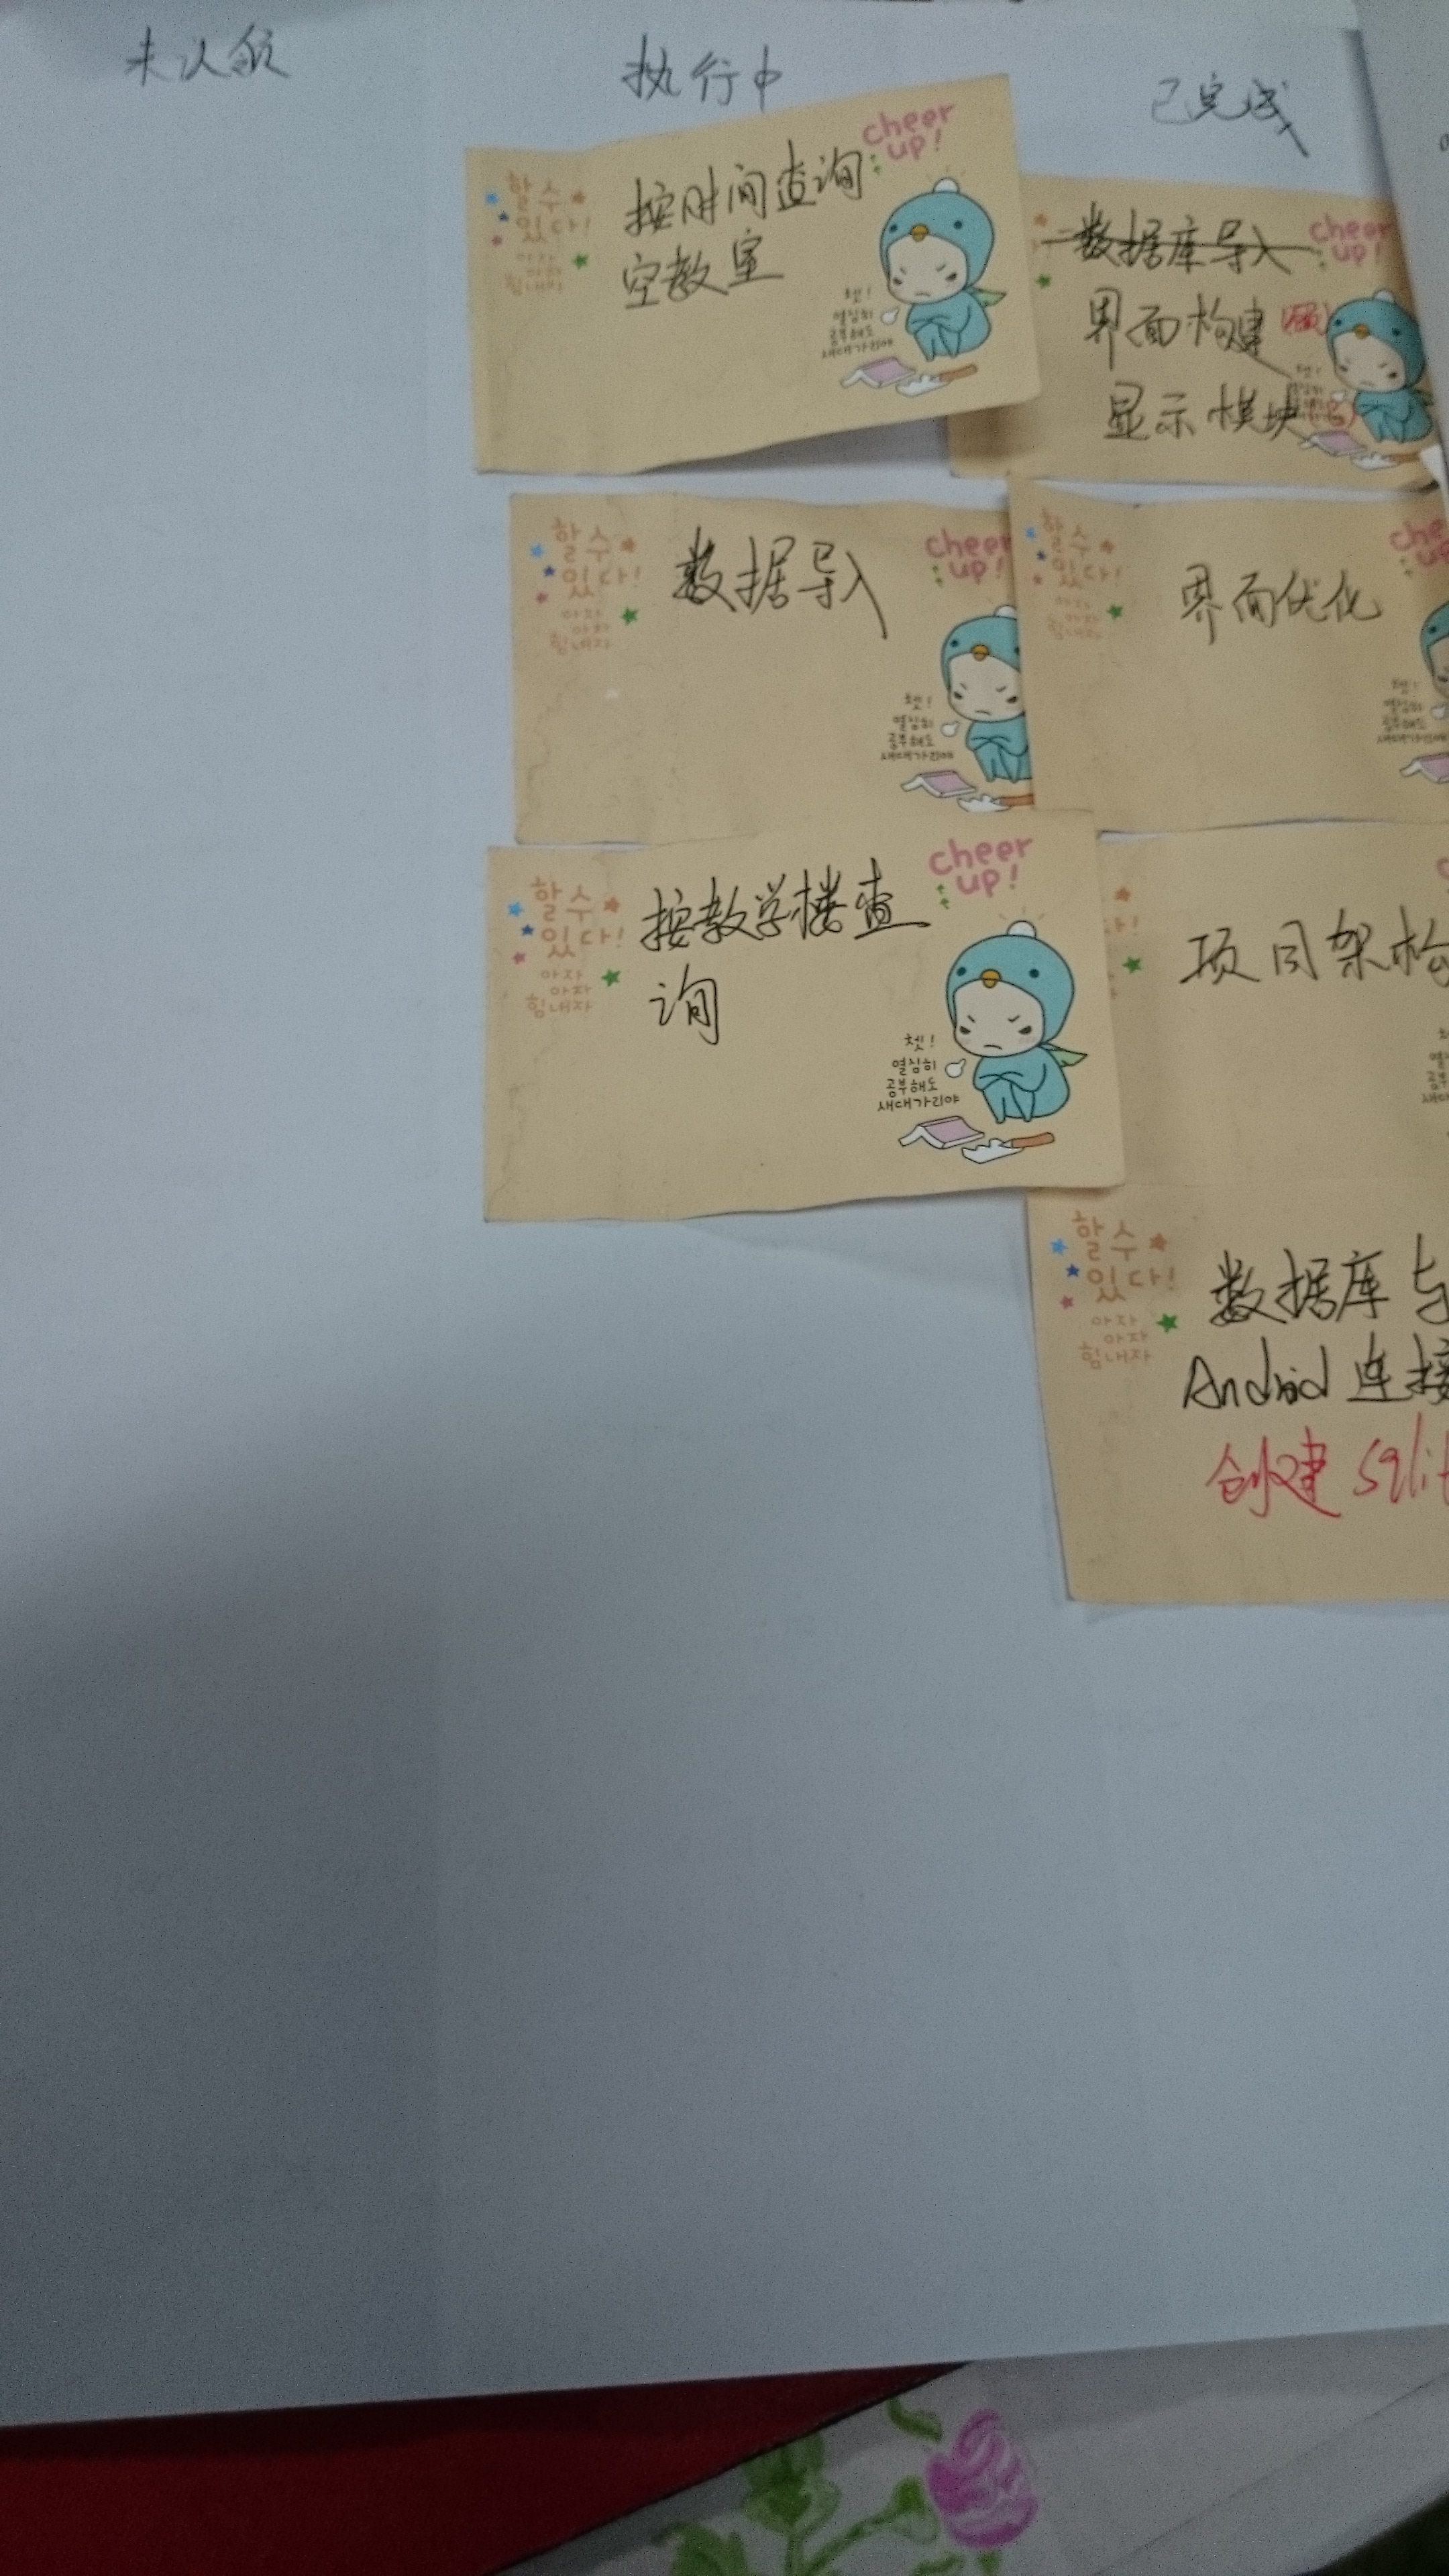 未认领
执行中
已完成
按时间查询
空教室
cheer
up!
할 수
있다!
아자
아자
힘내자
쳇!
열심히
공부해도
새대가리야
数据库导入
界面构建
显示模块
cheer
up!
数据导入
할 수
있다!
아자
아자
힘내자
cheer
up!
쳇!
열심히
공부해도
새대가리야
界面优化
할 수
있다!
아자
아자
힘내자
쳇!
열심히
공부해도
새대가리야
按教学楼查
询
할 수
있다!
아자
아자
힘내자
cheer
up!
쳇!
열심히
공부해도
새대가리야
项目架构
数据库与
Android 连接
创建 sqlit
할 수
있다!
아자
아자
힘내자